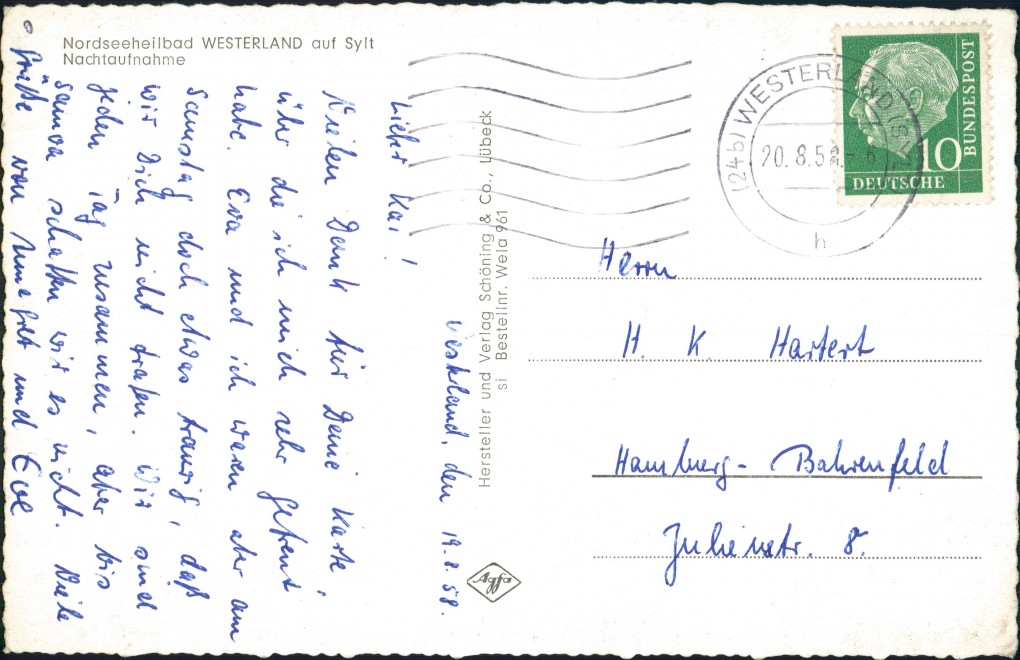 Nordseeheilbad WESTERLAND auf Sylt
Nachtaufnahme
Westerland, den 19.8.58.
Lieber Kai!
Vielen Dank für Deine Karte,
über die ich mich sehr gefreut
habe. Eva und ich waren aber am
Samstag doch etwas traurig, daß
wir Dich nicht trafen. Wir sind
jeden Tag zusammen, aber bis
Samoa schaffen wir es nicht. Viele
Grüße von und Eva
Hersteller und Verlag Schöning & Co., Lübeck
si Bestellnr. Wela 961
Agfa
(24b) WESTERLAND (SYLT
20.8.58.-6
h
DEUTSCHE
BUNDESPOST
10
Herrn
H. K. Hartert
Hamburg-Bahrenfeld
Julienstr. 8.